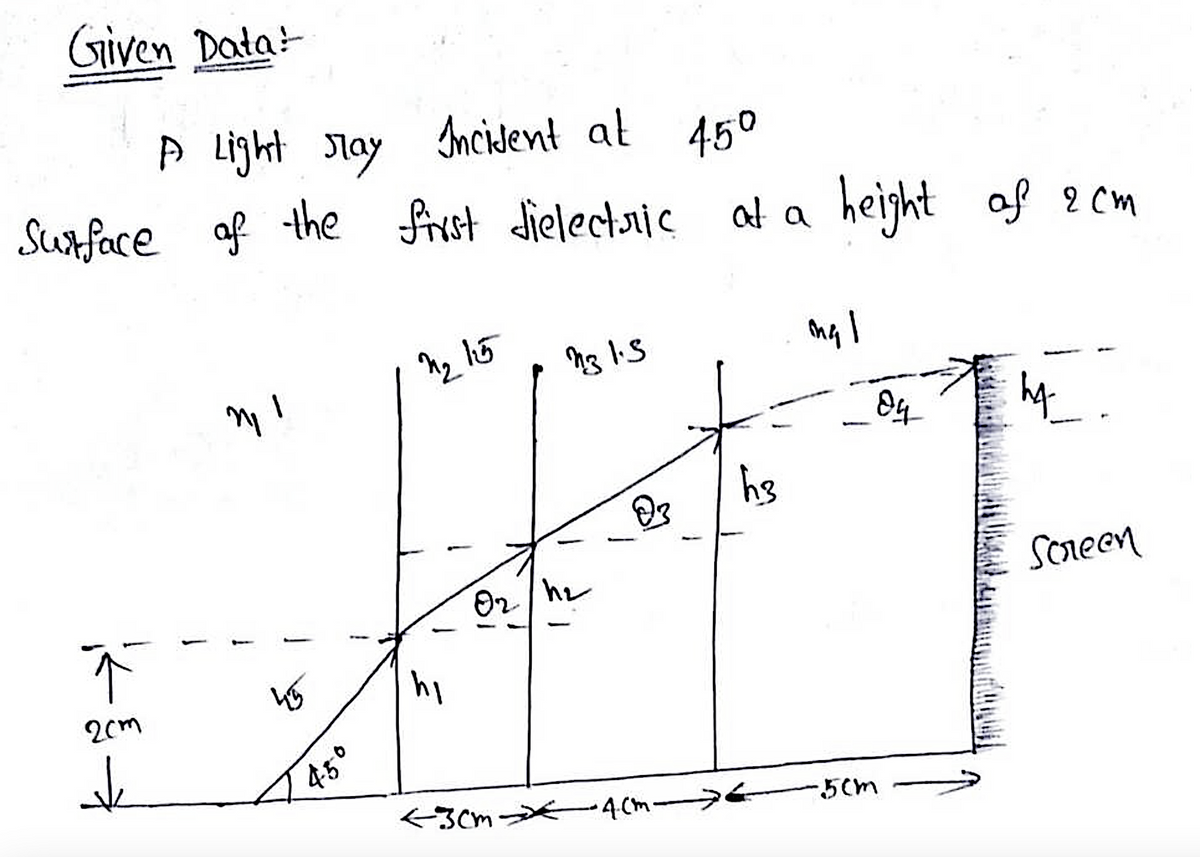 Given Data:-
A Light ray Incident at 45°
Surface of the first dielectric at a height of 2 cm
n4 1
n2 1.5
n3 1.5
n1 1
h4
θ4
h3
θ3
Screen
θ2
h2
h1
45
2cm
45°
3cm
4cm
5cm